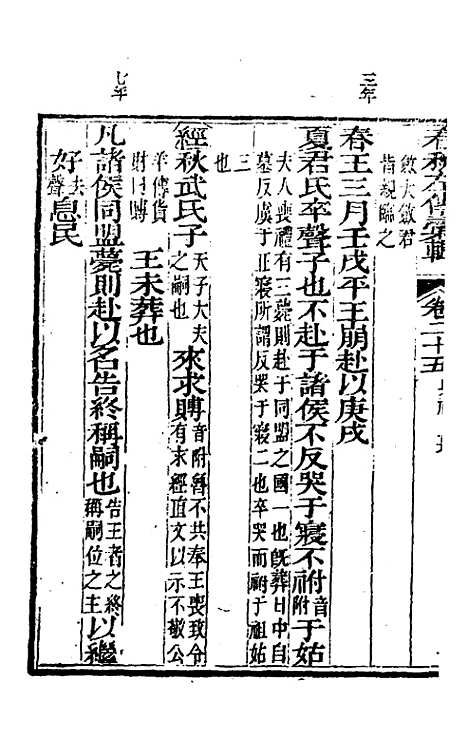 三年
七年
春秋左傳彙輯 卷二十五
斂大斂君
皆親臨之
春王三月壬戌平王崩赴以庚戌
夏君氏卒聲子也不赴于諸侯不反哭于寢不祔音附于姑
夫人喪禮有三薨則赴于同盟之國一也旣葬日中自
墓反虞于正寢所謂反哭于寢二也卒哭而祔于祖姑
三
也
經秋武氏子天子大夫之嗣也來求賻音附魯不共奉王喪致令有求經直文以示不敬公
羊傳貨財曰賻王未葬也
凡諸侯同盟薨則赴以名告終稱嗣也告王者之終稱嗣位之主以繼
好去聲息民